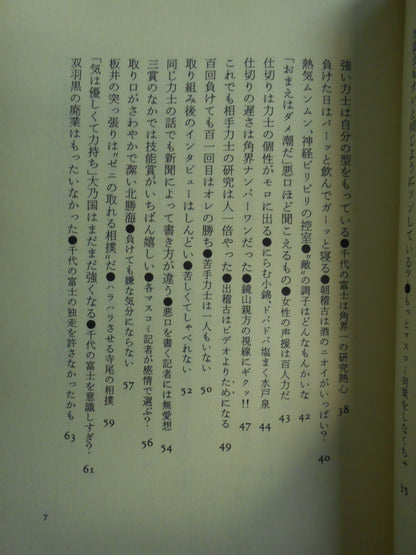 している●もっとマスコミ対策をしなくちゃ 35
強い力士は自分の型をもっている●千代の富士は角界一の研究熱心 38
負けた日はパーッと飲んでガーッと寝る●朝稽古は酒のニオイがいっぱい? 40
熱気ムンムン、神経ピリピリの控室●“敵”の調子はどんなもんかいな 42
「おまえはダメ潮だ」悪口ほど聞こえるもの●女性の声援は百人力だ 43
仕切りは力士の個性がモロに出る●にらむ小錦、ドバドバ塩まく水戸泉 44
仕切りの遅さは角界ナンバーワンだった●鏡山親方の視線にギクッ!! 47
これでも相手力士の研究は人一倍やった●出稽古はビデオよりためになる 49
百回負けても百一回目はオレの勝ち●苦手力士は一人もいない 50
取り組み後のインタビューはしんどい●苦しくてしゃべれない 52
同じ力士の話でも新聞によって書き方が違う●悪口を書く記者には無愛想 54
三賞のなかでは技能賞がいちばん嬉しい●各マスコミ記者が感情で選ぶ? 56
取り口がさわやかで潔い北勝海●負けても嫌な気分にならない 57
板井の突っ張りは“ゼニの取れる相撲”だ●ハラハラさせる寺尾の相撲 59
「気は優しくて力持ち」大乃国はまだまだ強くなる●千代の富士を意識しすぎ? 61
双羽黒の廃業はもったいなかった●千代の富士の独走を許さなかったかも 63
7